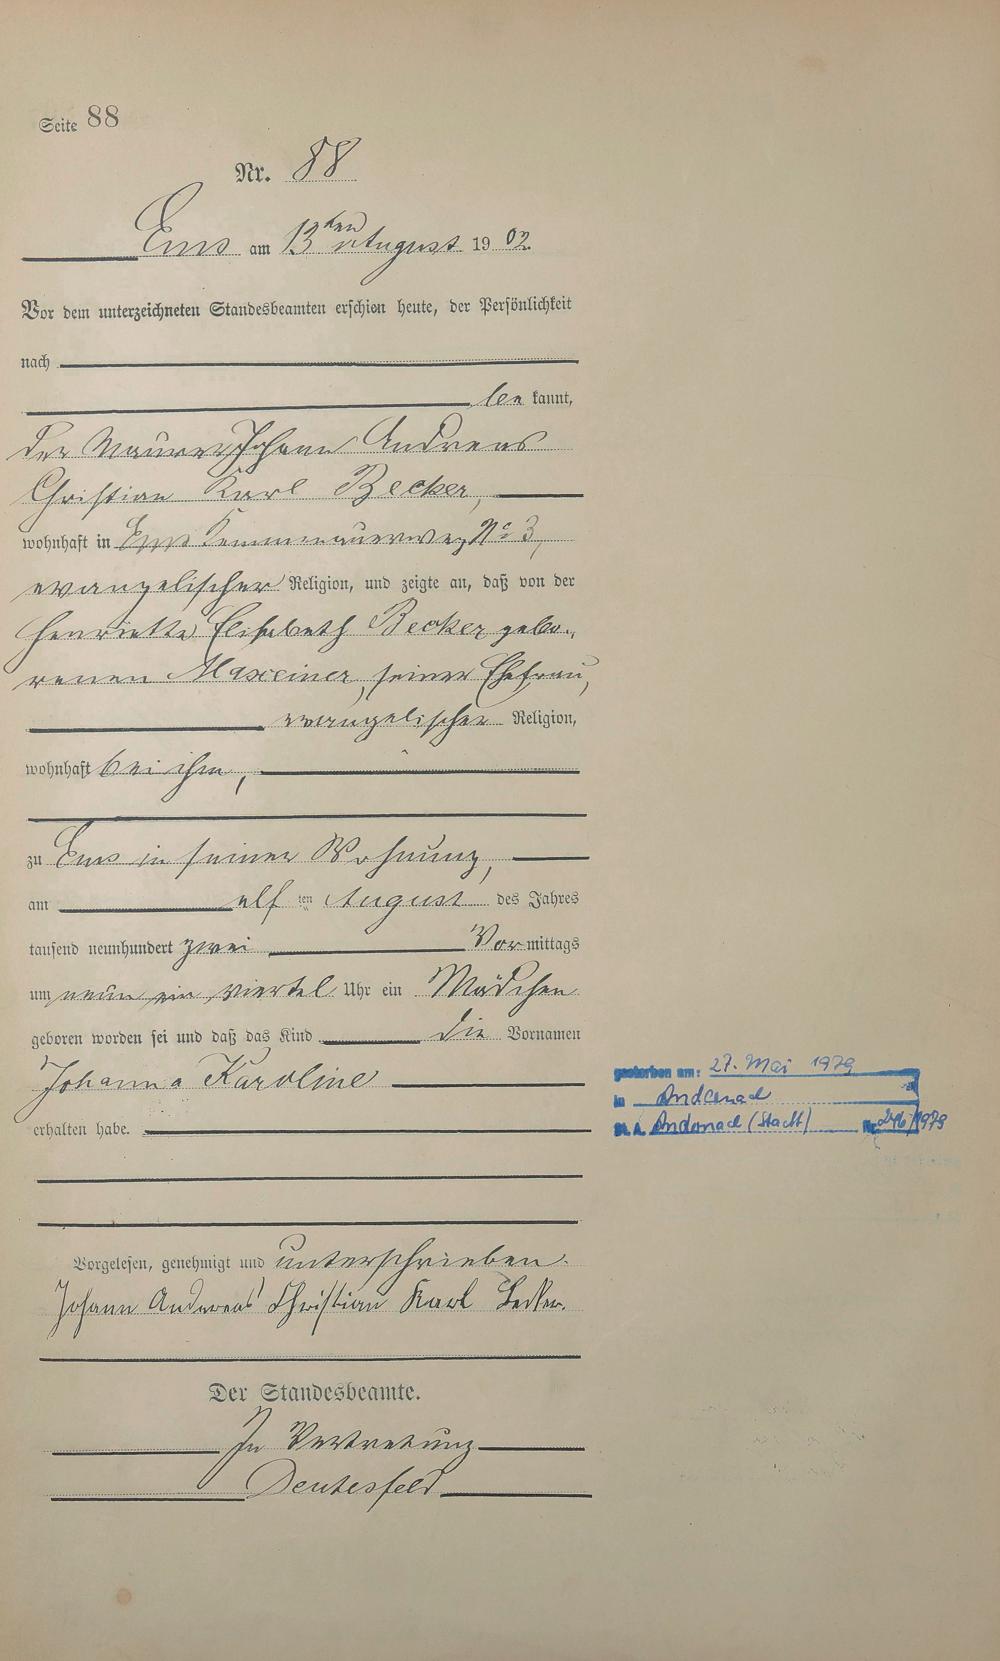 Seite 88
Nr. 88
Ems am 13ten August 1902
Vor dem unterzeichneten Standesbeamten erschien heute, der Persönlichkeit
nach
be kannt,
der Maurer Johann Andreas
Christian Karl Becker,
wohnhaft in Ems No 3,
evangelischer Religion, und zeigte an, daß von der
Henriette Elisabeth Becker gebo-
renen Maxeiner, seiner Ehefrau,
evangelischer Religion,
wohnhaft bei ihm,
zu Ems in seiner Wohnung,
am elf ten August des Jahres
tausend neunhundert zwei Vormittags
um neun ein viertel Uhr ein Mädchen
geboren worden sei und daß das Kind die Vornamen
Johanna Karoline
erhalten habe.
gestorben am: 27. Mai 1979
in Andernach
St. A. Andernach (Stadt) Nr. 246/1979
Vorgelesen, genehmigt und unterschrieben.
Johann Andereas Christian Karl Becker.
Der Standesbeamte.
In Vertretung